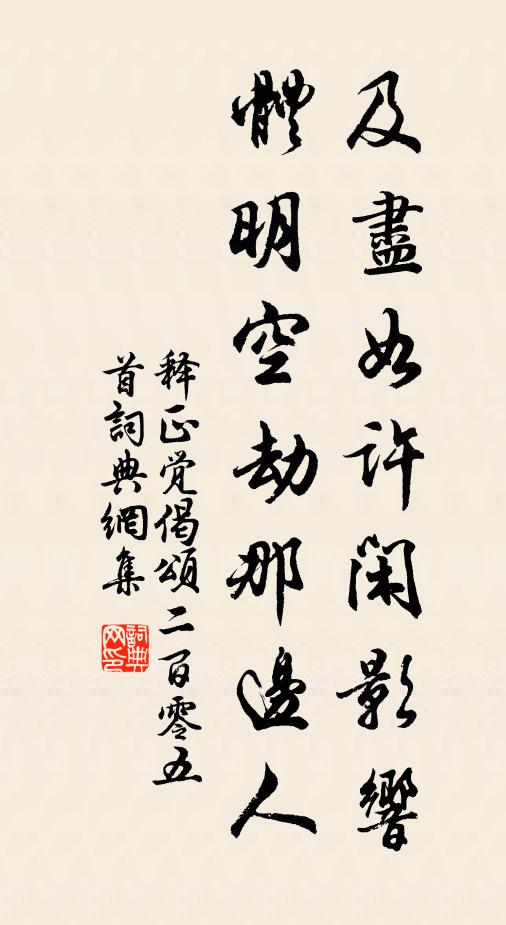 及盡如許閑影響
體明空劫那邊人
释正觉偈頌二百零五
首詞典網集
詞典网印